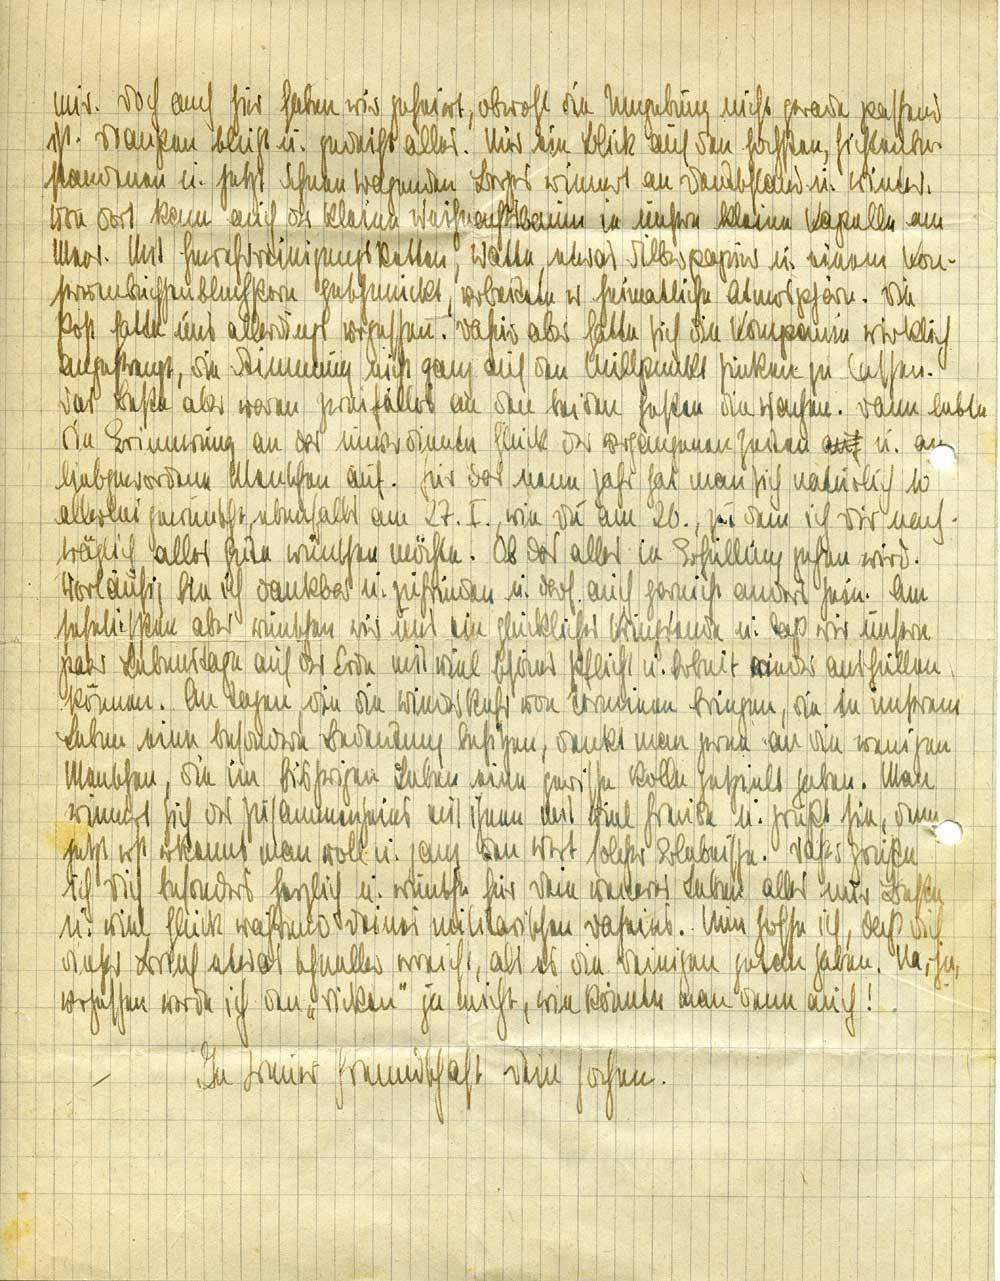 mir. Doch auch hier haben wir gefeiert, obwohl die Umgebung nicht gerade passend
ist. Draußen blüht u. gedeiht alles. Nur ein Blick auf den höchsten, fichtenbe-
standenen u. jetzt Schnee tragenden Berges erinnert an Deutschland u. Winter.
Von dort kam auch der kleine Weihnachtsbaum in unsere kleine Kapelle am
Meer. Mit Gewehrreinigungsketten, Watte, etwas Silberpapier u. einem Kon-
servenbüchsenblechstern geschmückt, verbreitete er heimatliche Atmosphäre. Die
Post hatte uns allerdings vergessen. Dafür aber hatte sich die Kompanie wirklich
angestrengt, die Stimmung nicht ganz auf den Nullpunkt sinken zu lassen.
Das Beste aber waren zweifellos an den beiden Festen die Wachen. Dann lebte
die Erinnerung an das unverdiente Glück der vergangenen Zeiten u. an
liebgewordene Menschen auf. Für das neue Jahr hat man sich natürlich so
allerlei gewünscht, ebenfalls am 27. I., wie Du am 20., zu dem ich Dir nach-
träglich alles Gute wünschen möchte. Ob das alles in Erfüllung gehen wird.
Vorläufig bin ich dankbar u. zufrieden u. darf auch garnicht anders sein. Am
sehnlichsten aber wünschen wir uns ein glückliches Kriegsende u. daß wir unsere
paar Lebenstage auf der Erde mit viel schöner Pflicht u. Arbeit wieder ausfüllen
können. An Tagen, die die Wiederkehr von Terminen bringen, die in unserem
Leben eine besondere Bedeutung besitzen, denkt man gerne an die wenigen
Menschen, die im bisherigen Leben eine gewisse Rolle gespielt haben. Man
erinnert sich des Zusammenseins mit ihnen mit viel Freude u. grüßt sie, denn
jetzt erst erkennt man voll u. ganz den Wert solcher Erlebnisse. Daher grüße
ich Dich besonders herzlich u. wünsche für Dein weiteres Leben alles nur Beste
u. viel Glück während Deines militärischen Daseins. Nun hoffe ich, daß Dich
dieser Brief etwas schneller erreicht, als es die Deinigen getan haben. Na,
vergessen werde ich den „Dicken“ ja nicht, wie könnte man denn auch!
In treuer Freundschaft Dein Jochen.